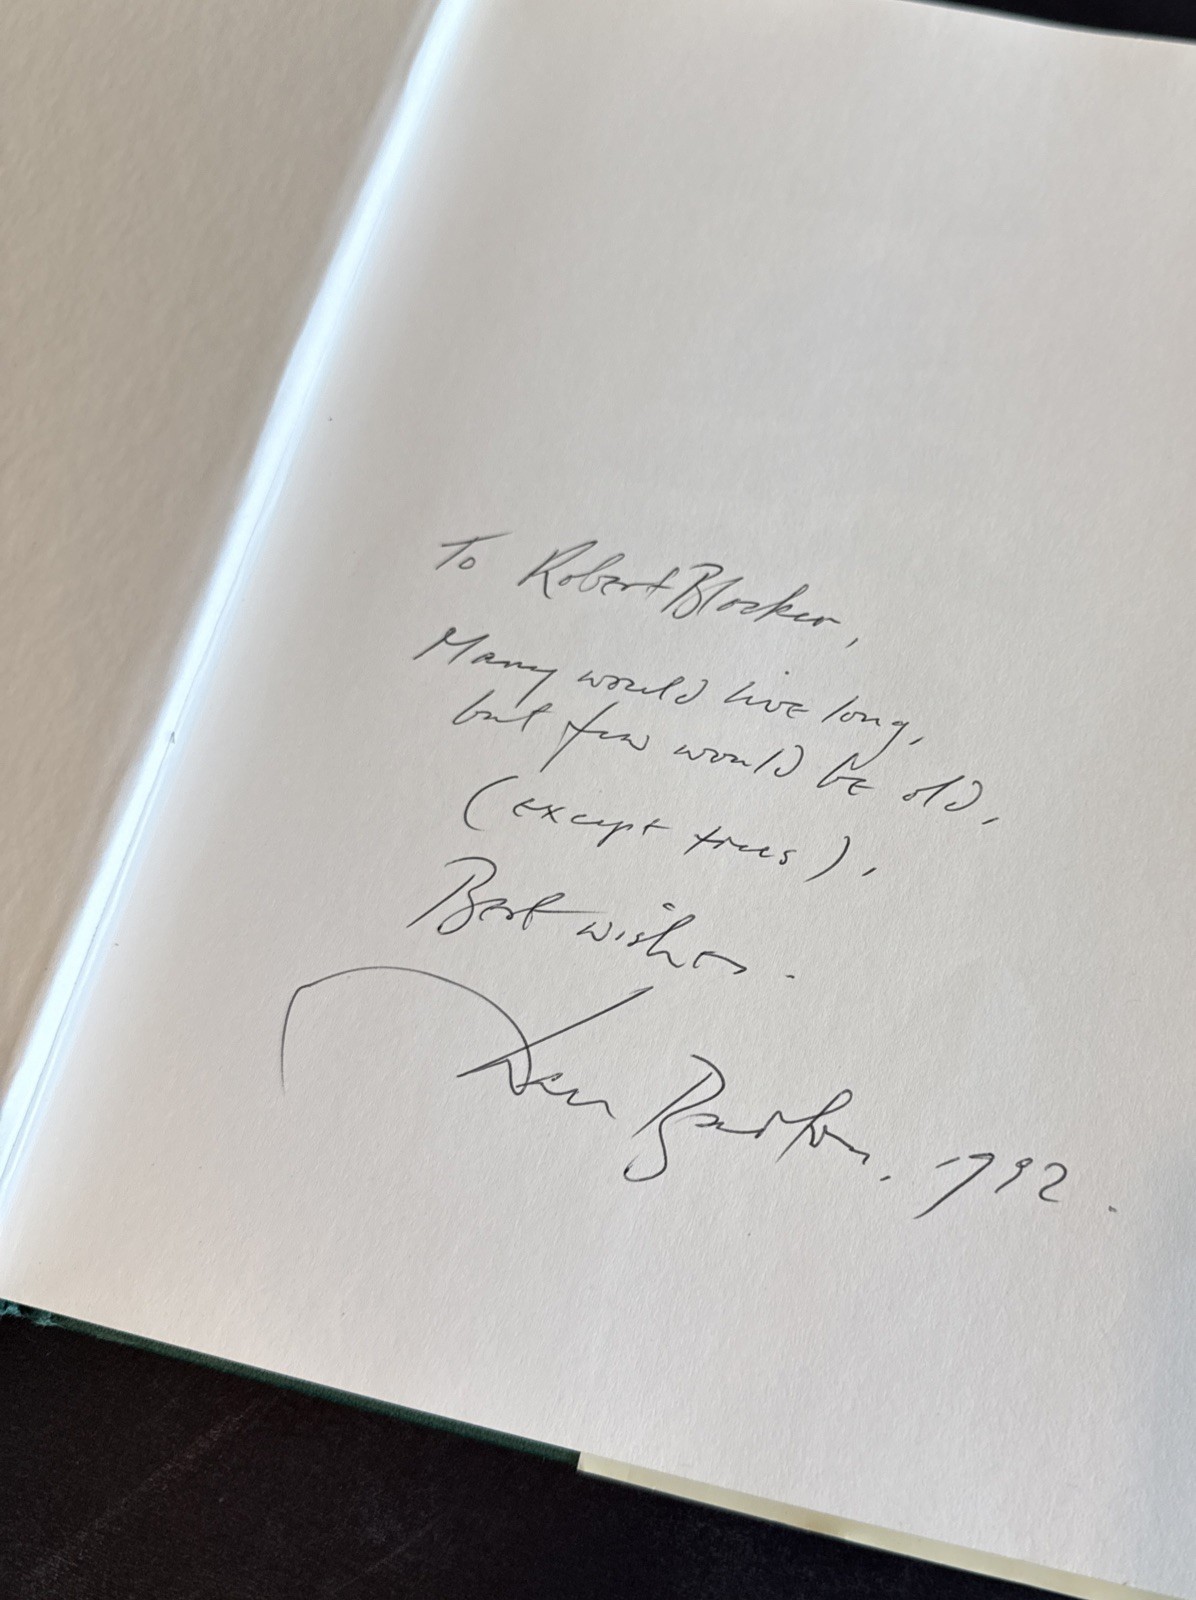 To Robert Blocker,
Many would live long,
but few would be old,
(except trees).
Best wishes.
Barton, 1992.